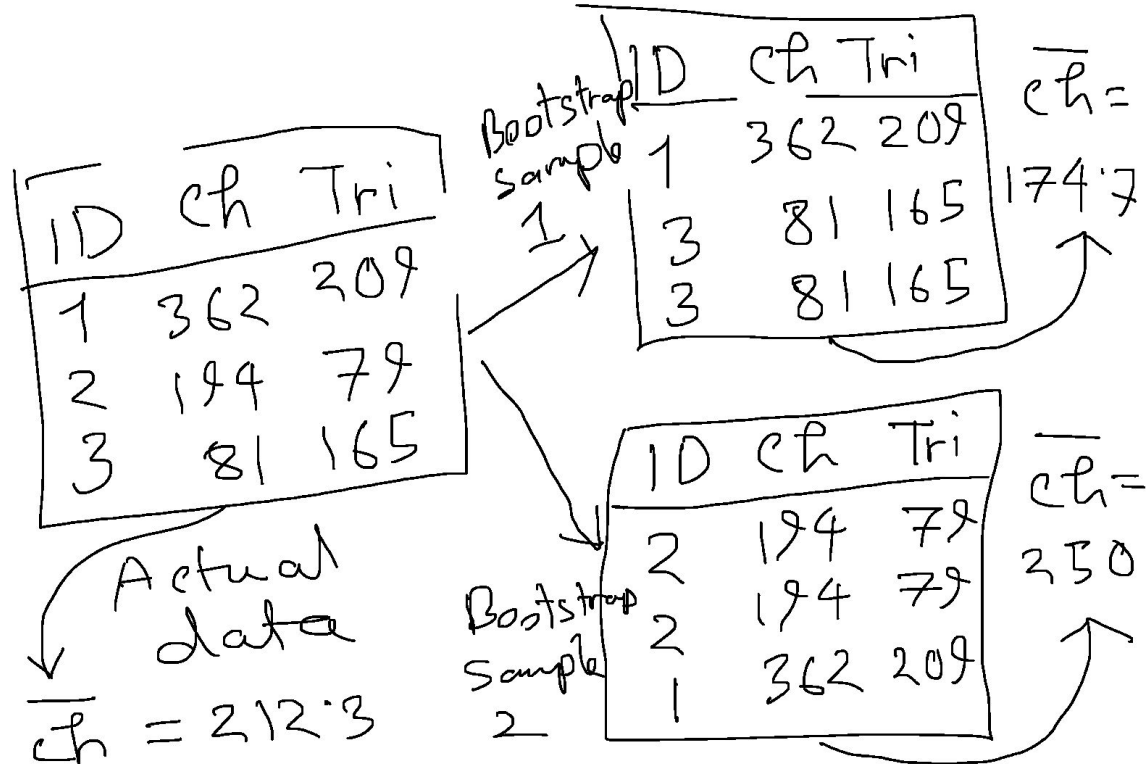 ID Ch Tri
1 362 209
2 194 79
3 81 165
Actual
data
ch = 212.3
Bootstrap
sample
1
ID Ch Tri
1 362 209
3 81 165
3 81 165
ch =
174.7
Bootstrap
sample
2
ID Ch Tri
2 194 79
2 194 79
1 362 209
ch =
250